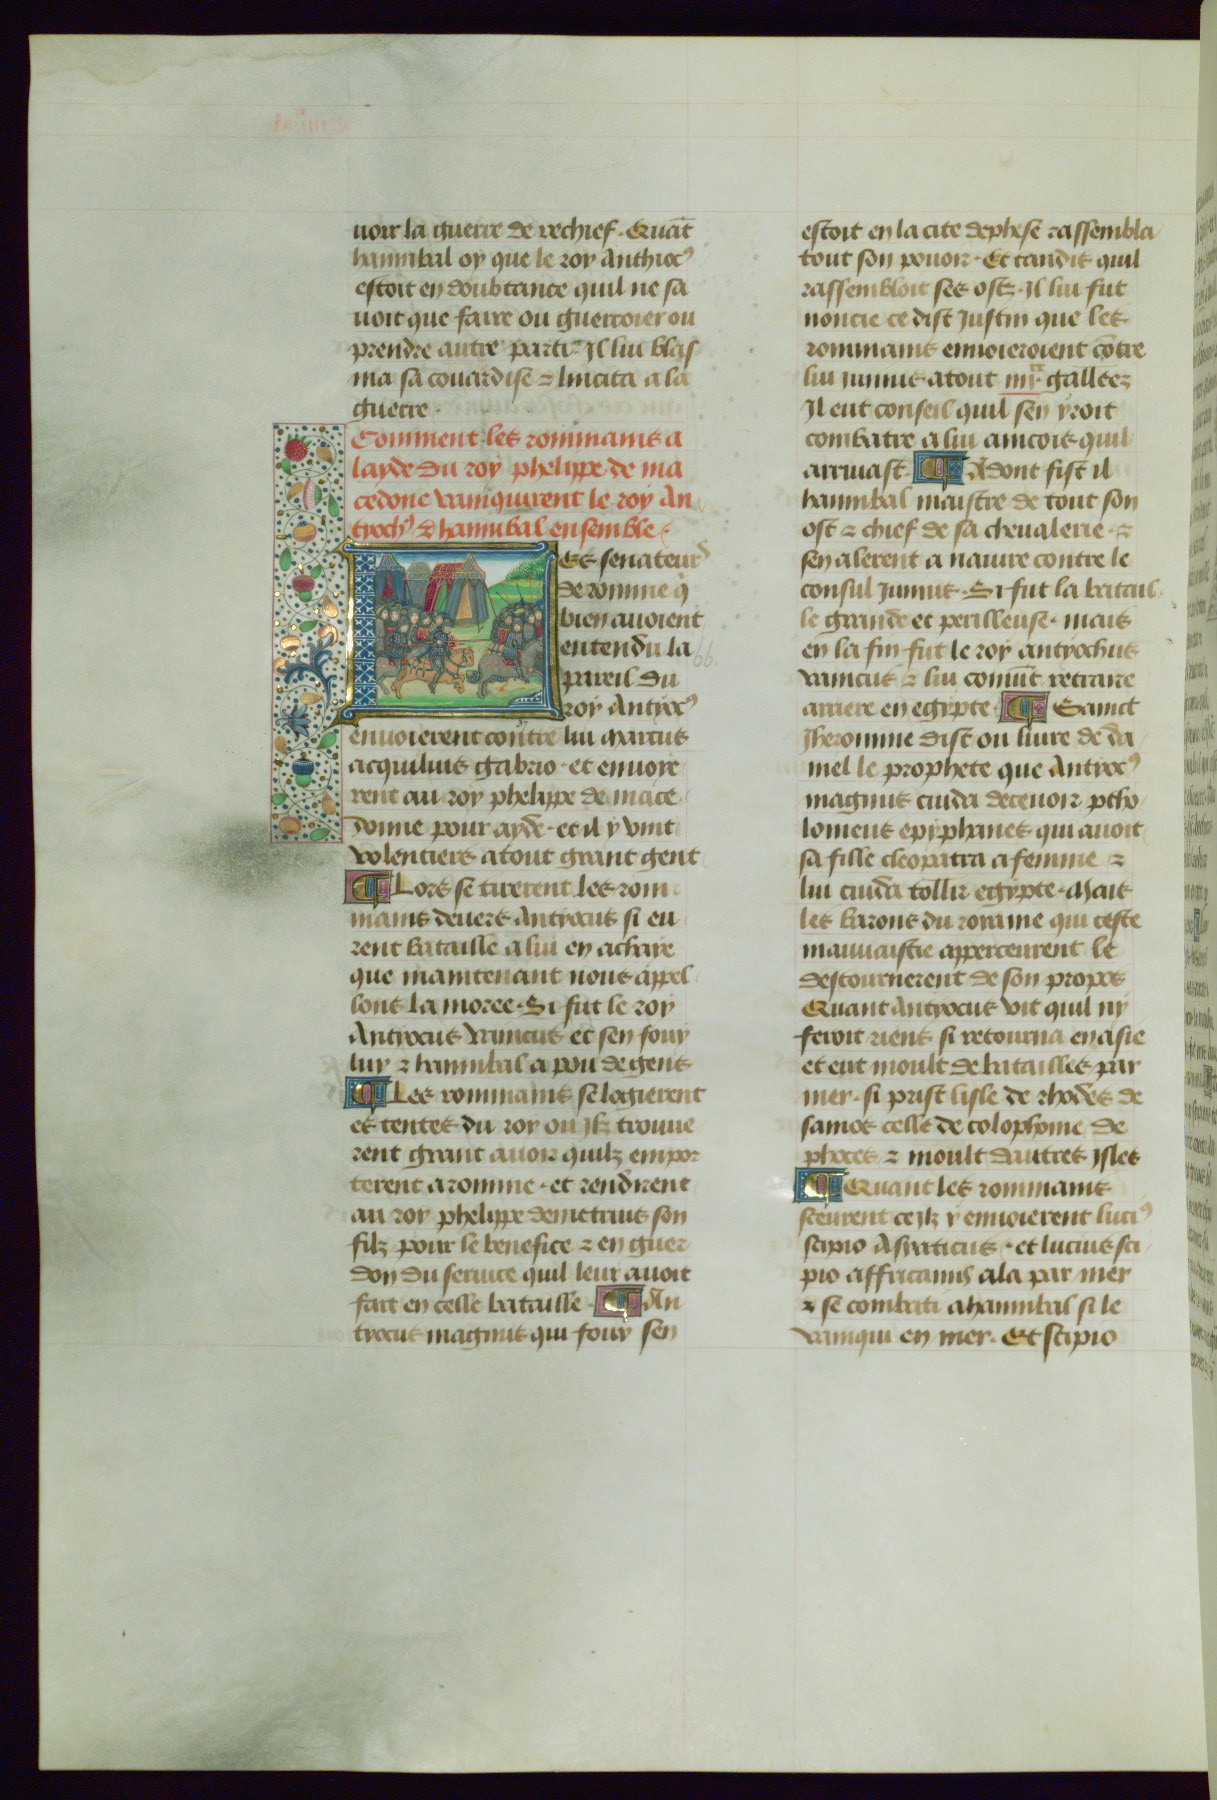 uoir la guerre de rechief. Quāt
hannibal oy que le roy Anthiocꝰ
estoit en doubtance quil ne sa
uoit que faire ou guerroier ou
prendre autre parti Il lui blas
ma sa couardise ⁊ lincita a la
guerre.
Comment les rommains a
layde du roy phelippe de ma
cedone vainquirent le roy An
tyochꝰ ⁊ hannibal ensemble.
Es senateurs
de romme q̄
bien auoient
entendu la
pareil du
roy Antyocꝰ
enuoierent contre lui Marcus
acquilius gabrio. et enuoye
rent au roy phelippe de mace
donne pour ayde. et il y vint
volentiers a tout grant gent
Lors se tirerent les rom
mains deuers Antyocus si eu
rent bataille a lui en achaye
que maintenant nous appel
lons la moree. Si fut le roy
Antyocus vaincus et sen fouy
luy ⁊ hannibal a pou de gens
Les rommains se logierent
es tentes du roy ou ilz trouue
rent grant auoir quilz empor
terent a romme. et rendirent
au roy phelippe demetrius son
filz pour le benefice ⁊ en guer
don du seruice quil leur auoit
fait en celle bataille. An
tyocus magnus qui fouy sen
estoit en la cite dephese rassembla
tout son pouoir. Et tandis quil
rassembloit ses ostz. Il lui fut
noncie ce dist Justin que les
rommains enuoieroient cōtre
lui Junius atout galleez
Il eut conseil quil sen yroit
combatre a lui aincois quil
arriuast. Adont fist il
hannibal maistre de tout son
ost ⁊ chief de sa cheualerie. ⁊
sen alerent a nauire contre le
consul Junius. Si fut la batail
le grande et perilleuse. mais
en la fin fut le roy antyochus
vaincus ⁊ lui conuīt retraire
arriere en egypte. Sainct
Jheromme dist ou liure de da
niel le prophete que Antyocꝰ
magnus cuida deceuoir ptho
lomeus epyphanes qui auoit
sa fille cleopatra a femme ⁊
lui cuida tollir egypte. Mais
les barons du royaume qui ceste
mauuaistie apperceurent le
destournerent de son propos
Quant Antyocus vit quil ny
feroit riens si retourna en asie
et eut moult de batailles par
mer. si prist lisle de rhodes de
samos celle de colophone de
phoces ⁊ moult dautres isles
Quant les rommains
sceurent ce ilz y enuoierent luciꝰ
scipio Asyaticus. et lucius sci
pio affricanus ala par mer
⁊ se combati a hannibal si le
vainqui en mer. Et scipio
66.